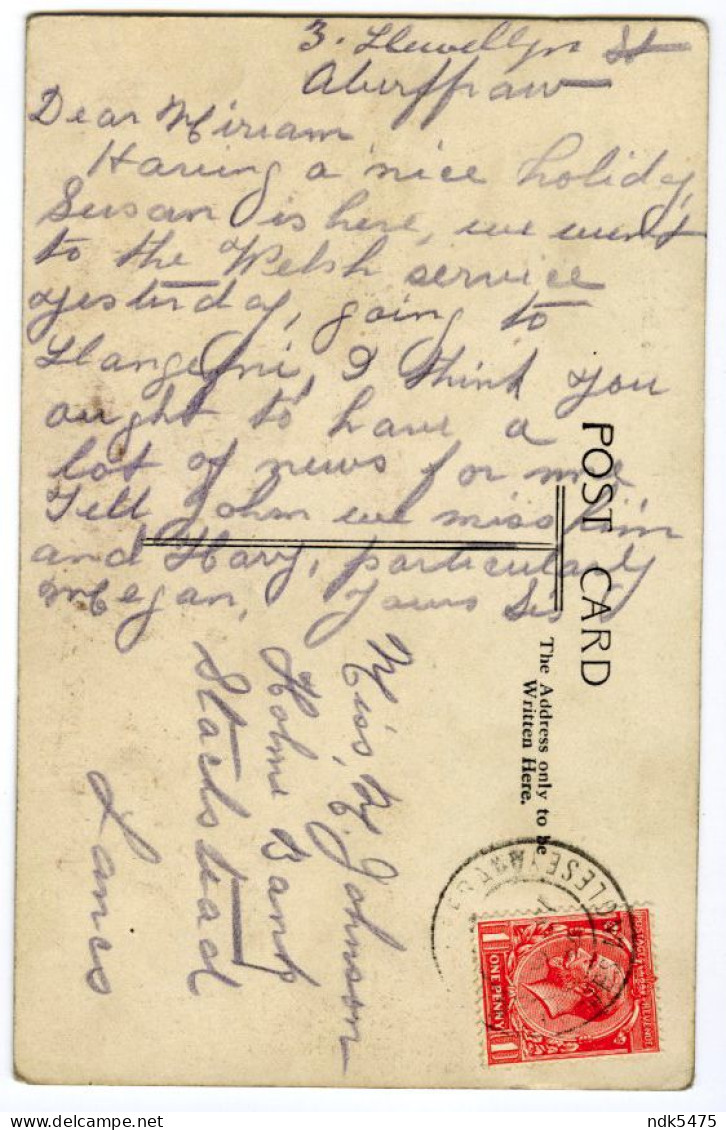 3. Llewellyn St
Aberffraw
Dear Miriam
Having a nice holiday,
Susan is here, we went
to the Welsh service
yesterday, going to
Llangefni, I think you
ought to have a
lot of news for me
Tell John we miss him
and Mary, particularly
Megan, Yours Sis
POST CARD
The Address only to be
Written Here.
Miss M. Johnson
Holme Bank
Stacksteads
Lancs
POSTAGE REVENUE
1 ONE PENNY 1
ndk5475